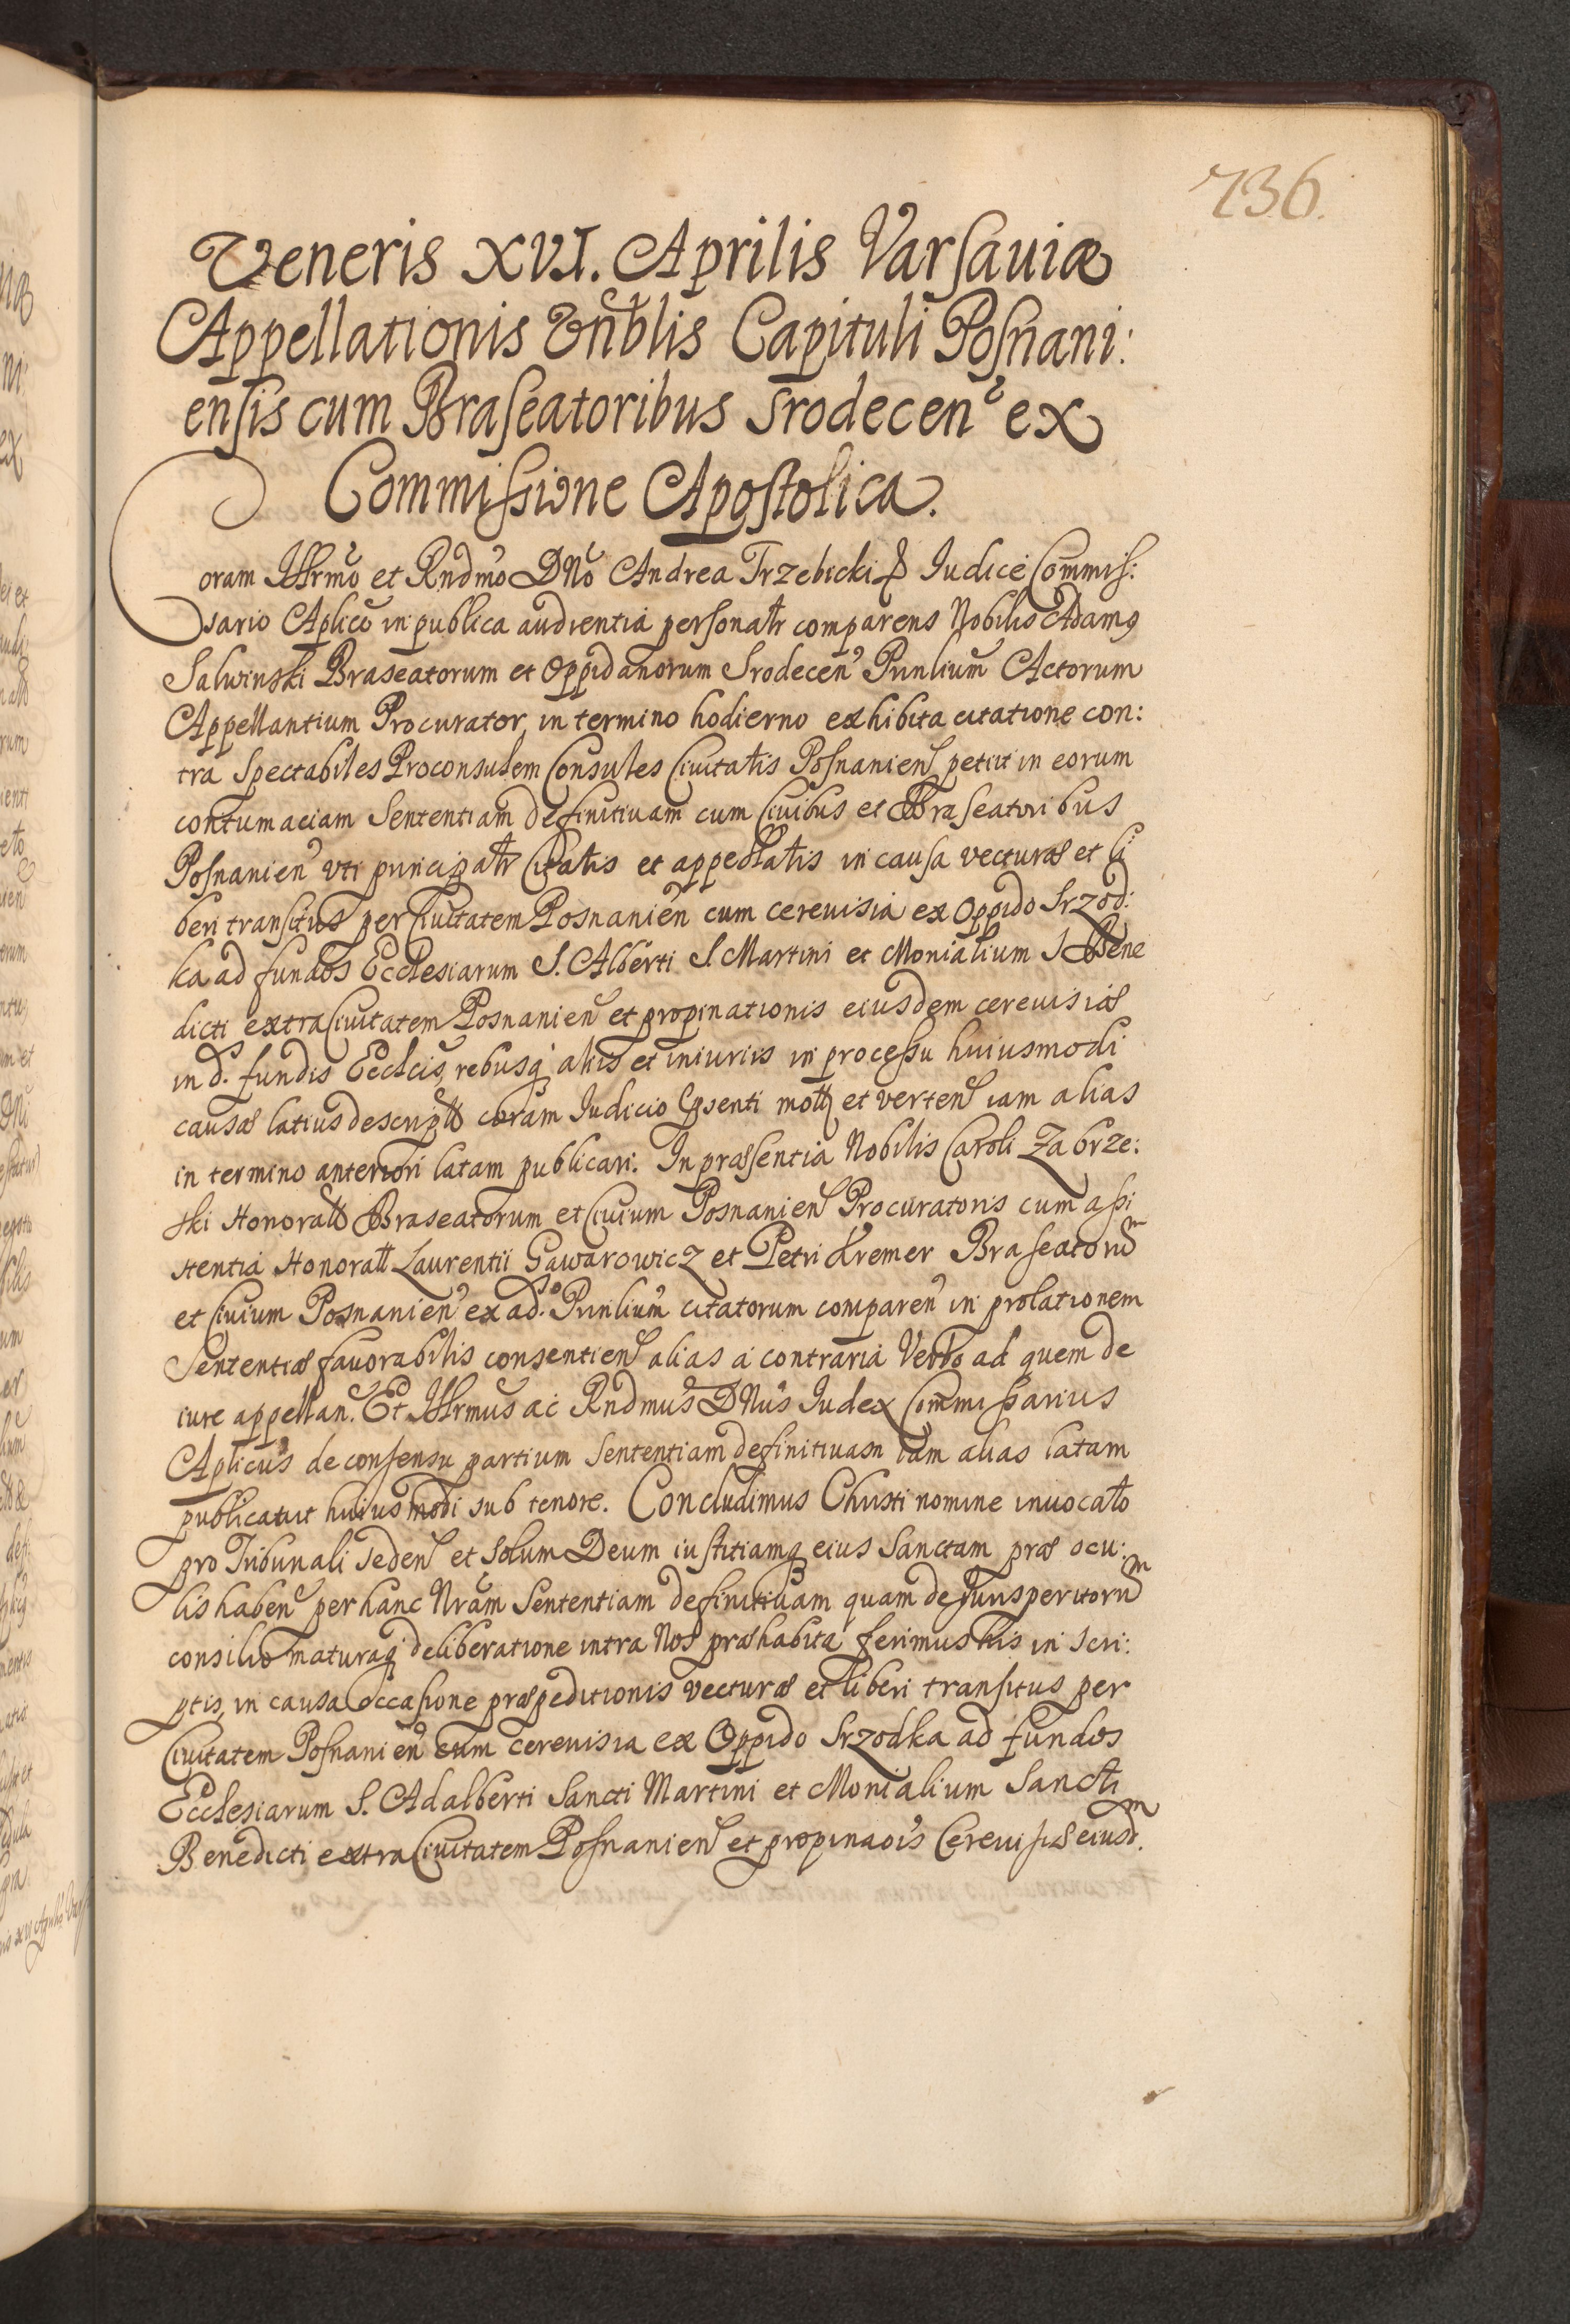 736.
Veneris XVI. Aprilis Varsauiæ
Appellationis Vnblis Capituli Posnani:
ensis cum Braseatoribus Srodecen ex
Commissione Apostolica.
Coram Illrmo et Rndmo DNo Andrea Trzebicki Iudice Commis:
sario Aplico in publica audientia personatr comparens Nobilis Adamus
Salwinski Braseatorum et Oppidanorum Srodecen Prinlium Actorum
Appellantium Procurator, in termino hodierno exhibita citatione con:
tra Spectabiles Proconsulem Consules Ciuitatis Posnanien petiit in eorum
contumaciam Sententiam definitiuam cum Ciuibus et Braseatoribus
Posnanien vti principatr Citatis et appellatis in causa vecturæ et li
beri transitus per Ciuitatem Posnanien cum cereuisia ex Oppido Srzod:
ka ad fundos Ecclesiarum S. Alberti S. Martini et Monialium S Bene
dicti extra Ciuitatem Posnanien et propinationis eiusdem cereuisiæ
in d. fundis Ecclcis, rebusq aliis et iniuriis in processu huiusmodi
causæ latius descript coram Iudicio psenti mott et verten iam alias
in termino anteriori latam publicari. In præsentia Nobilis Caroli Zabrze:
ski Honoratt Braseatorum et Ciuium Posnanien Procuratoris cum assi
stentia Honoratt Laurentii Gawarowicz et Petri Kremer Braseatorum
et Ciuium Posnanien ex adso. Prinlium citatorum comparen in prolationem
Sententiæ fauorabilis consentien alias a contraria Verbo ad quem de
iure appellan. Et Illrmus ac Rndmus DNus Iudex Commissarius
Aplicus de consensu partium Sententiam definitiuam iam alias latam
publicauit huiusmodi sub tenore. Concludimus Christi nomine inuocato
pro Tribunali seden et solum Deum iustitiamq eius Sanctam præ ocu:
lis haben per hanc Nram Sententiam definitiuam quam de Iurisperitorum
consilio maturaq deliberatione intra Nos præhabita ferimus his in scri:
ptis, in causa occasione præpeditionis vecturæ et liberi transitus per
Ciuitatem Posnanien cum cereuisia ex Oppido Srzodka ad fundos
Ecclesiarum S. Adalberti Sancti Martini et Monialium Sancti
Benedicti extra Ciuitatem Posnanien et propinaois Cereuisiæ eiusdm.